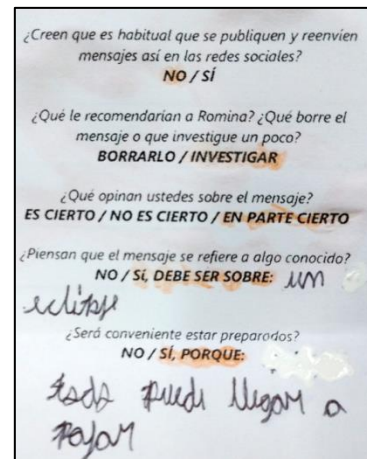 ¿Creen que es habitual que se publiquen y reenvíen
mensajes así en las redes sociales?
NO / SÍ
¿Qué le recomendarían a Romina? ¿Qué borre el
mensaje o que investigue un poco?
BORRARLO / INVESTIGAR
¿Qué opinan ustedes sobre el mensaje?
ES CIERTO / NO ES CIERTO / EN PARTE CIERTO
¿Piensan que el mensaje se refiere a algo conocido?
NO / SÍ, DEBE SER SOBRE: un
eclipse
¿Será conveniente estar preparados?
NO / SÍ, PORQUE:
todo puede llegar a
pasar